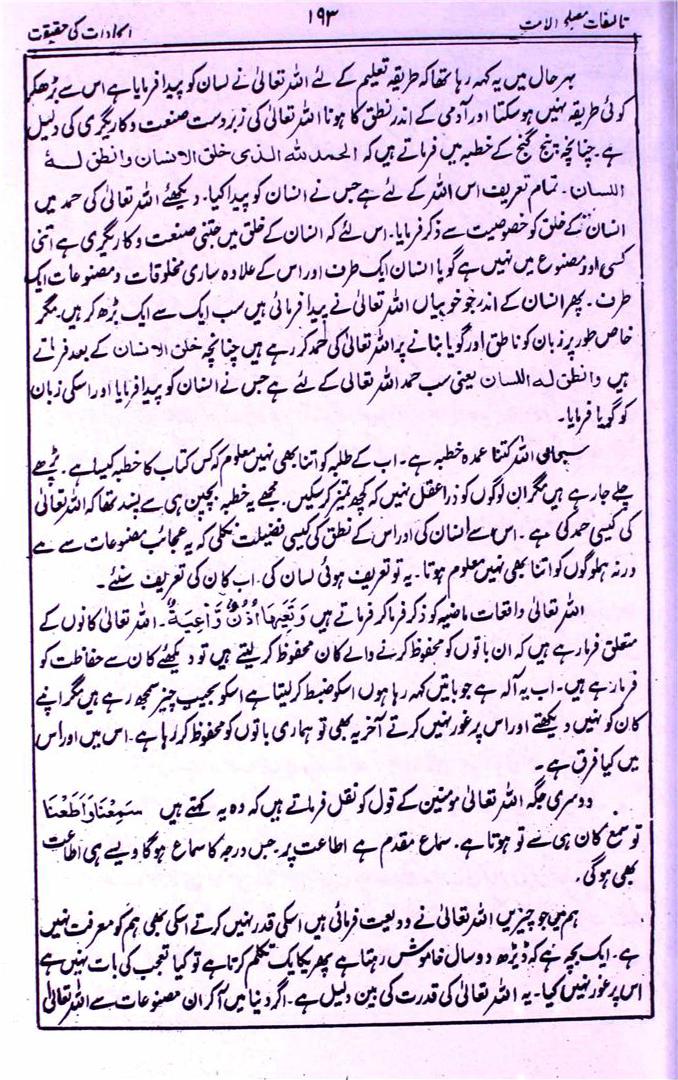 تالیفات مصلح الامت ۱۹۳ ایجادات کی حقیقت
بہر حال میں یہ کہہ رہا تھا کہ طریقہ تعلیم کے لئے اللہ تعالیٰ نے لسان کو پیدا فرمایا ہے اس سے بڑھکر
کوئی طریقہ نہیں ہوسکتا اور آدمی کے اندر نطق کا ہونا اللہ تعالیٰ کی زبردست صنعت و کاریگری کی دلیل
ہے۔ چنانچہ پنج گنج کے خطبہ میں فرماتے ہیں کہ الحمد للہ الذی خلق الانسان وانطق لہ
اللسان۔ تمام تعریف اس اللہ کے لئے ہے جس نے انسان کو پیدا کیا۔ دیکھئے اللہ تعالیٰ کی حمد میں
انسان کے خلق کو خصوصیت سے ذکر فرمایا۔ اس لئے کہ انسان کے خلق میں جتنی صنعت و کاریگری ہے اتنی
کسی اور مصنوع میں نہیں ہے گویا انسان ایک طرف اور اس کے علاوہ ساری مخلوقات و مصنوعات ایک
طرف۔ پھر انسان کے اندر جو خوبیاں اللہ تعالیٰ نے پیدا فرمائی ہیں سب ایک سے ایک بڑھ کر ہیں۔ مگر
خاص طور پر زبان کو ناطق اور گویا بنانے پر اللہ تعالیٰ کی حمد کر رہے ہیں چنانچہ خلق الانسان کے بعد فرماتے
ہیں وانطق لہ اللسان یعنی سب حمد اللہ تعالی کے لئے ہے جس نے انسان کو پیدا فرمایا اور اسکی زبان
کو گویا فرمایا۔
سبحان اللہ کتنا عمدہ خطبہ ہے۔ اب کے طلبہ کو اتنا بھی نہیں معلوم کہ کس کتاب کا خطبہ کیسا ہے۔ پڑھے
چلے جارہے ہیں مگر ان لوگوں کو ذرا عقل نہیں کہ کچھ تمیز کرسکیں۔ مجھے یہ خطبہ بچپن ہی سے پسند تھا کہ اللہ تعالیٰ
کی کیسی حمد کی ہے۔ اس سے انسان کی اور اس کے نطق کی کیسی فضیلت نکلی کہ یہ عجائب مصنوعات سے ہے
ورنہ ہملوگوں کو اتنا بھی نہیں معلوم ہوتا۔ یہ تو تعریف ہوئی لسان کی۔ اب کان کی تعریف سنئے۔
اللہ تعالیٰ واقعات ماضیہ کو ذکر فرماکر فرماتے ہیں وَتَعِيَهَا اُذُنٌ وَّاعِيَةٌ۔ اللہ تعالیٰ کانوں کے
متعلق فرمارہے ہیں کہ ان باتوں کو محفوظ کرنے والے کان محفوظ کرلیتے ہیں تو دیکھئے کان سے حفاظت کو
فرمارہے ہیں۔ اب یہ آلہ ہے جو باتیں کہہ رہا ہوں اسکو ضبط کرلیتا ہے اسکو عجیب چیز سمجھ رہے ہیں مگر اپنے
کان کو نہیں دیکھتے اور اس پر غور نہیں کرتے آخر یہ بھی تو ہماری باتوں کو محفوظ کر رہا ہے۔ اس میں اور اس
میں کیا فرق ہے۔
دوسری جگہ اللہ تعالیٰ مؤمنین کے قول کو نقل فرماتے ہیں کہ وہ یہ کہتے ہیں سَمِعْنَا وَاَطَعْنَا
تو سمع کان ہی سے تو ہوتا ہے۔ سماع مقدم ہے اطاعت پر۔ جس درجہ کا سماع ہوگا ویسے ہی اطاعت
بھی ہوگی۔
ہم میں جو چیزیں اللہ تعالیٰ نے ودیعت فرمائی ہیں اسکی قدر نہیں کرتے اسکی بھی ہم کو معرفت نہیں
ہے۔ ایک بچہ ہے کہ ڈیڑھ دو سال خاموش رہتا ہے پھر یکایک تکلم کرتا ہے تو کیا تعجب کی بات نہیں ہے
اس پر غور نہیں کیا۔ یہ اللہ تعالیٰ کی قدرت کی بین دلیل ہے۔ اگر دنیا میں آکر ان مصنوعات سے اللہ تعالیٰ